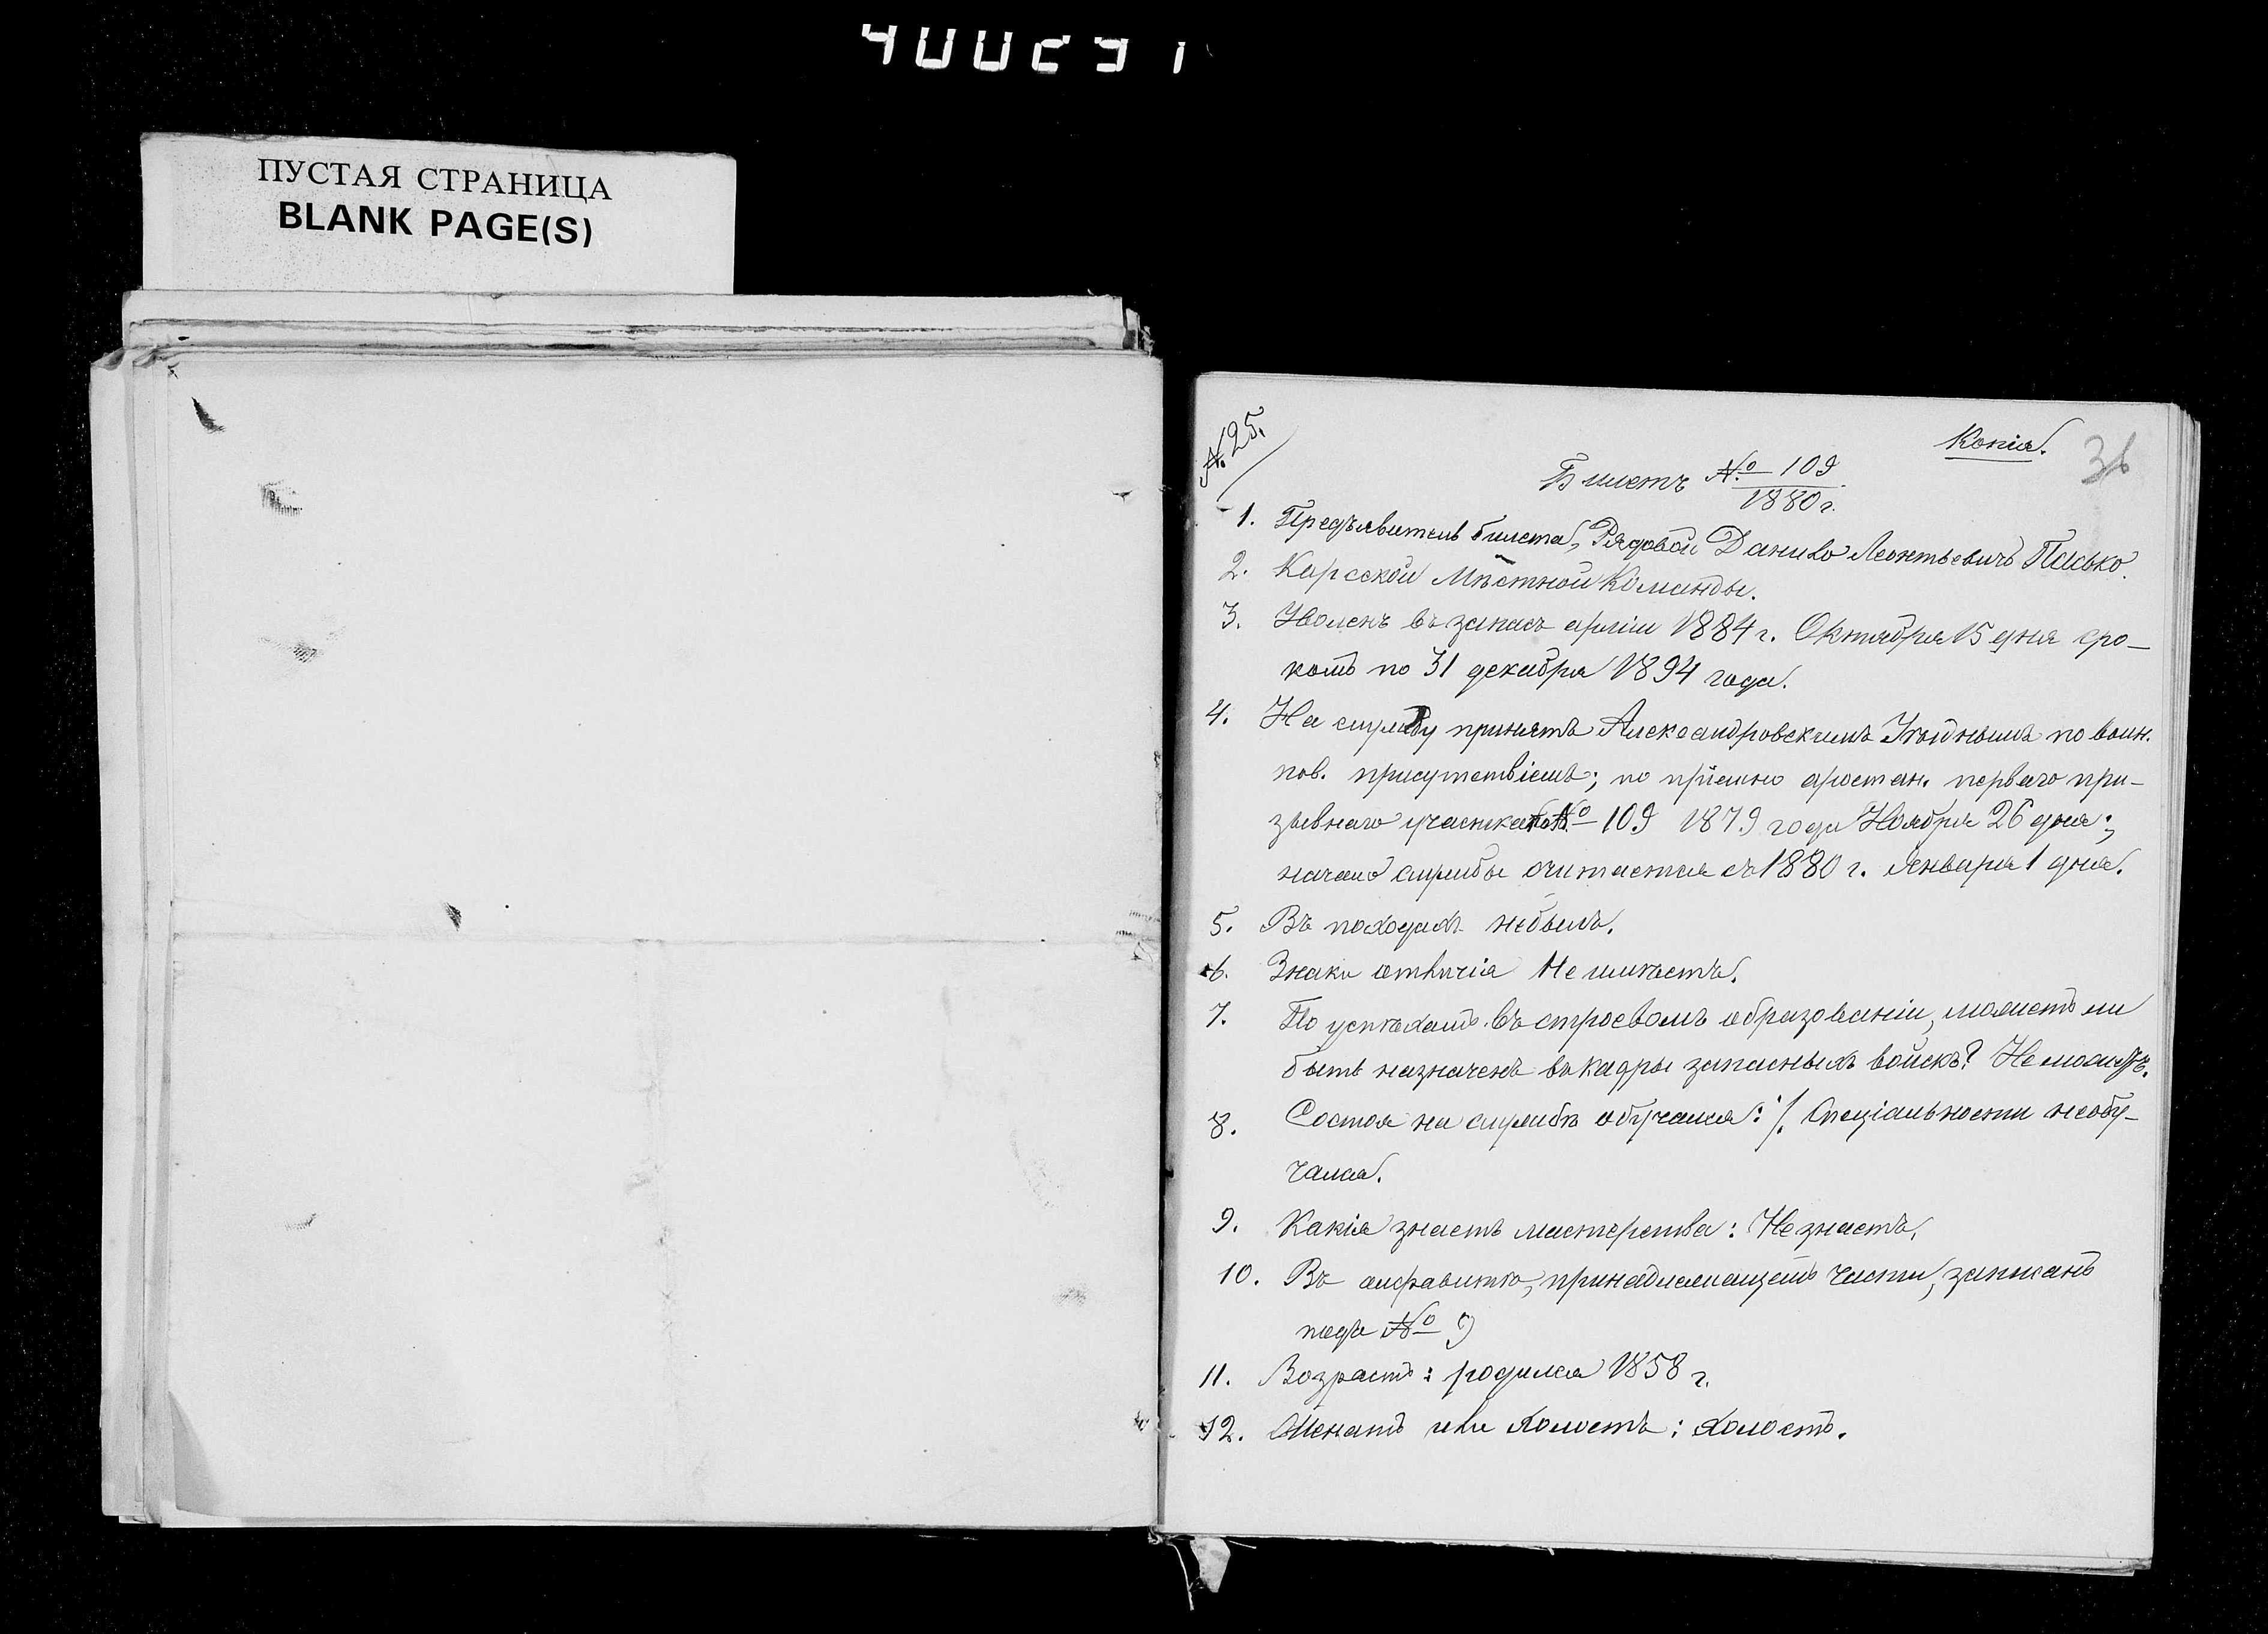 400291
ПУСТАЯ СТРАНИЦА
BLANK PAGE(S)
№ 25.
Копія.
36
Билетъ № 109
1880 г.
1. Предъявитель билета, Рядовой Данило Леонтьевичъ Пасько.
2. Карсской Мѣстной Команды.
3. Уволенъ въ запасъ арміи 1884 г. Октября 15 дня сро-
комъ по 31 декабря 1894 года.
4. На службу принятъ Александровскимъ Уѣзднымъ по воин.
пов. присутствіемъ; по пріемно первого при-
зывнаго участка № 109 1879 года Ноября 26 дня;
начало службы считается съ 1880 г. Января 1 дня.
5. Въ походахъ небылъ.
6. Знаки отличія Не имѣетъ.
7. По успѣхамъ въ строевомъ образованіи, можетъ ли
быть назначенъ въ кадры запасныхъ войскъ? Не можетъ.
8. Состоя на службѣ обучался: Спеціальности необу-
чался.
9. Какія знаетъ мастерства: Не знаетъ.
10. Въ алфавитѣ, принадлежащемъ части, записанъ
подъ № 9
11. Возрастъ: родился 1858 г.
12. Женатъ или холостъ: холостъ.